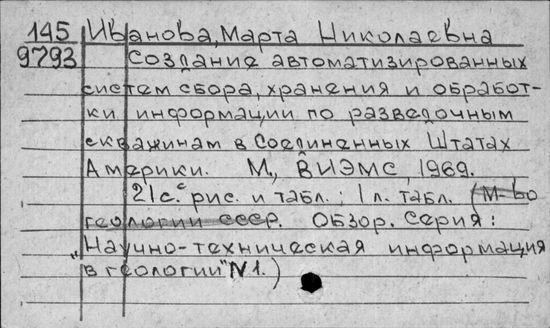 145 Иванова, Марта Николаевна
9793 Создание автоматизированных
систем сбора, хранения и обработ-
ки информации по разведочным
скважинам в Соединенных Штатах
Америки. М., ВИЭМС, 1969.
21 с. с рис. и табл.; 1 л. табл. (М-во
геологии СССР. Обзор. Серия:
"Научно-техническая информация
в геологии" №1.)